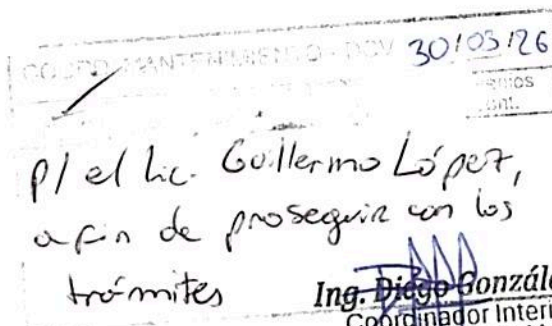 COORD. MANTENIMIENTO - DCV 30/03/26
p/ el Lic. Guillermo López,
a fin de proseguir con los
trámites
Ing. Diego Gonzál
Coordinador Interi